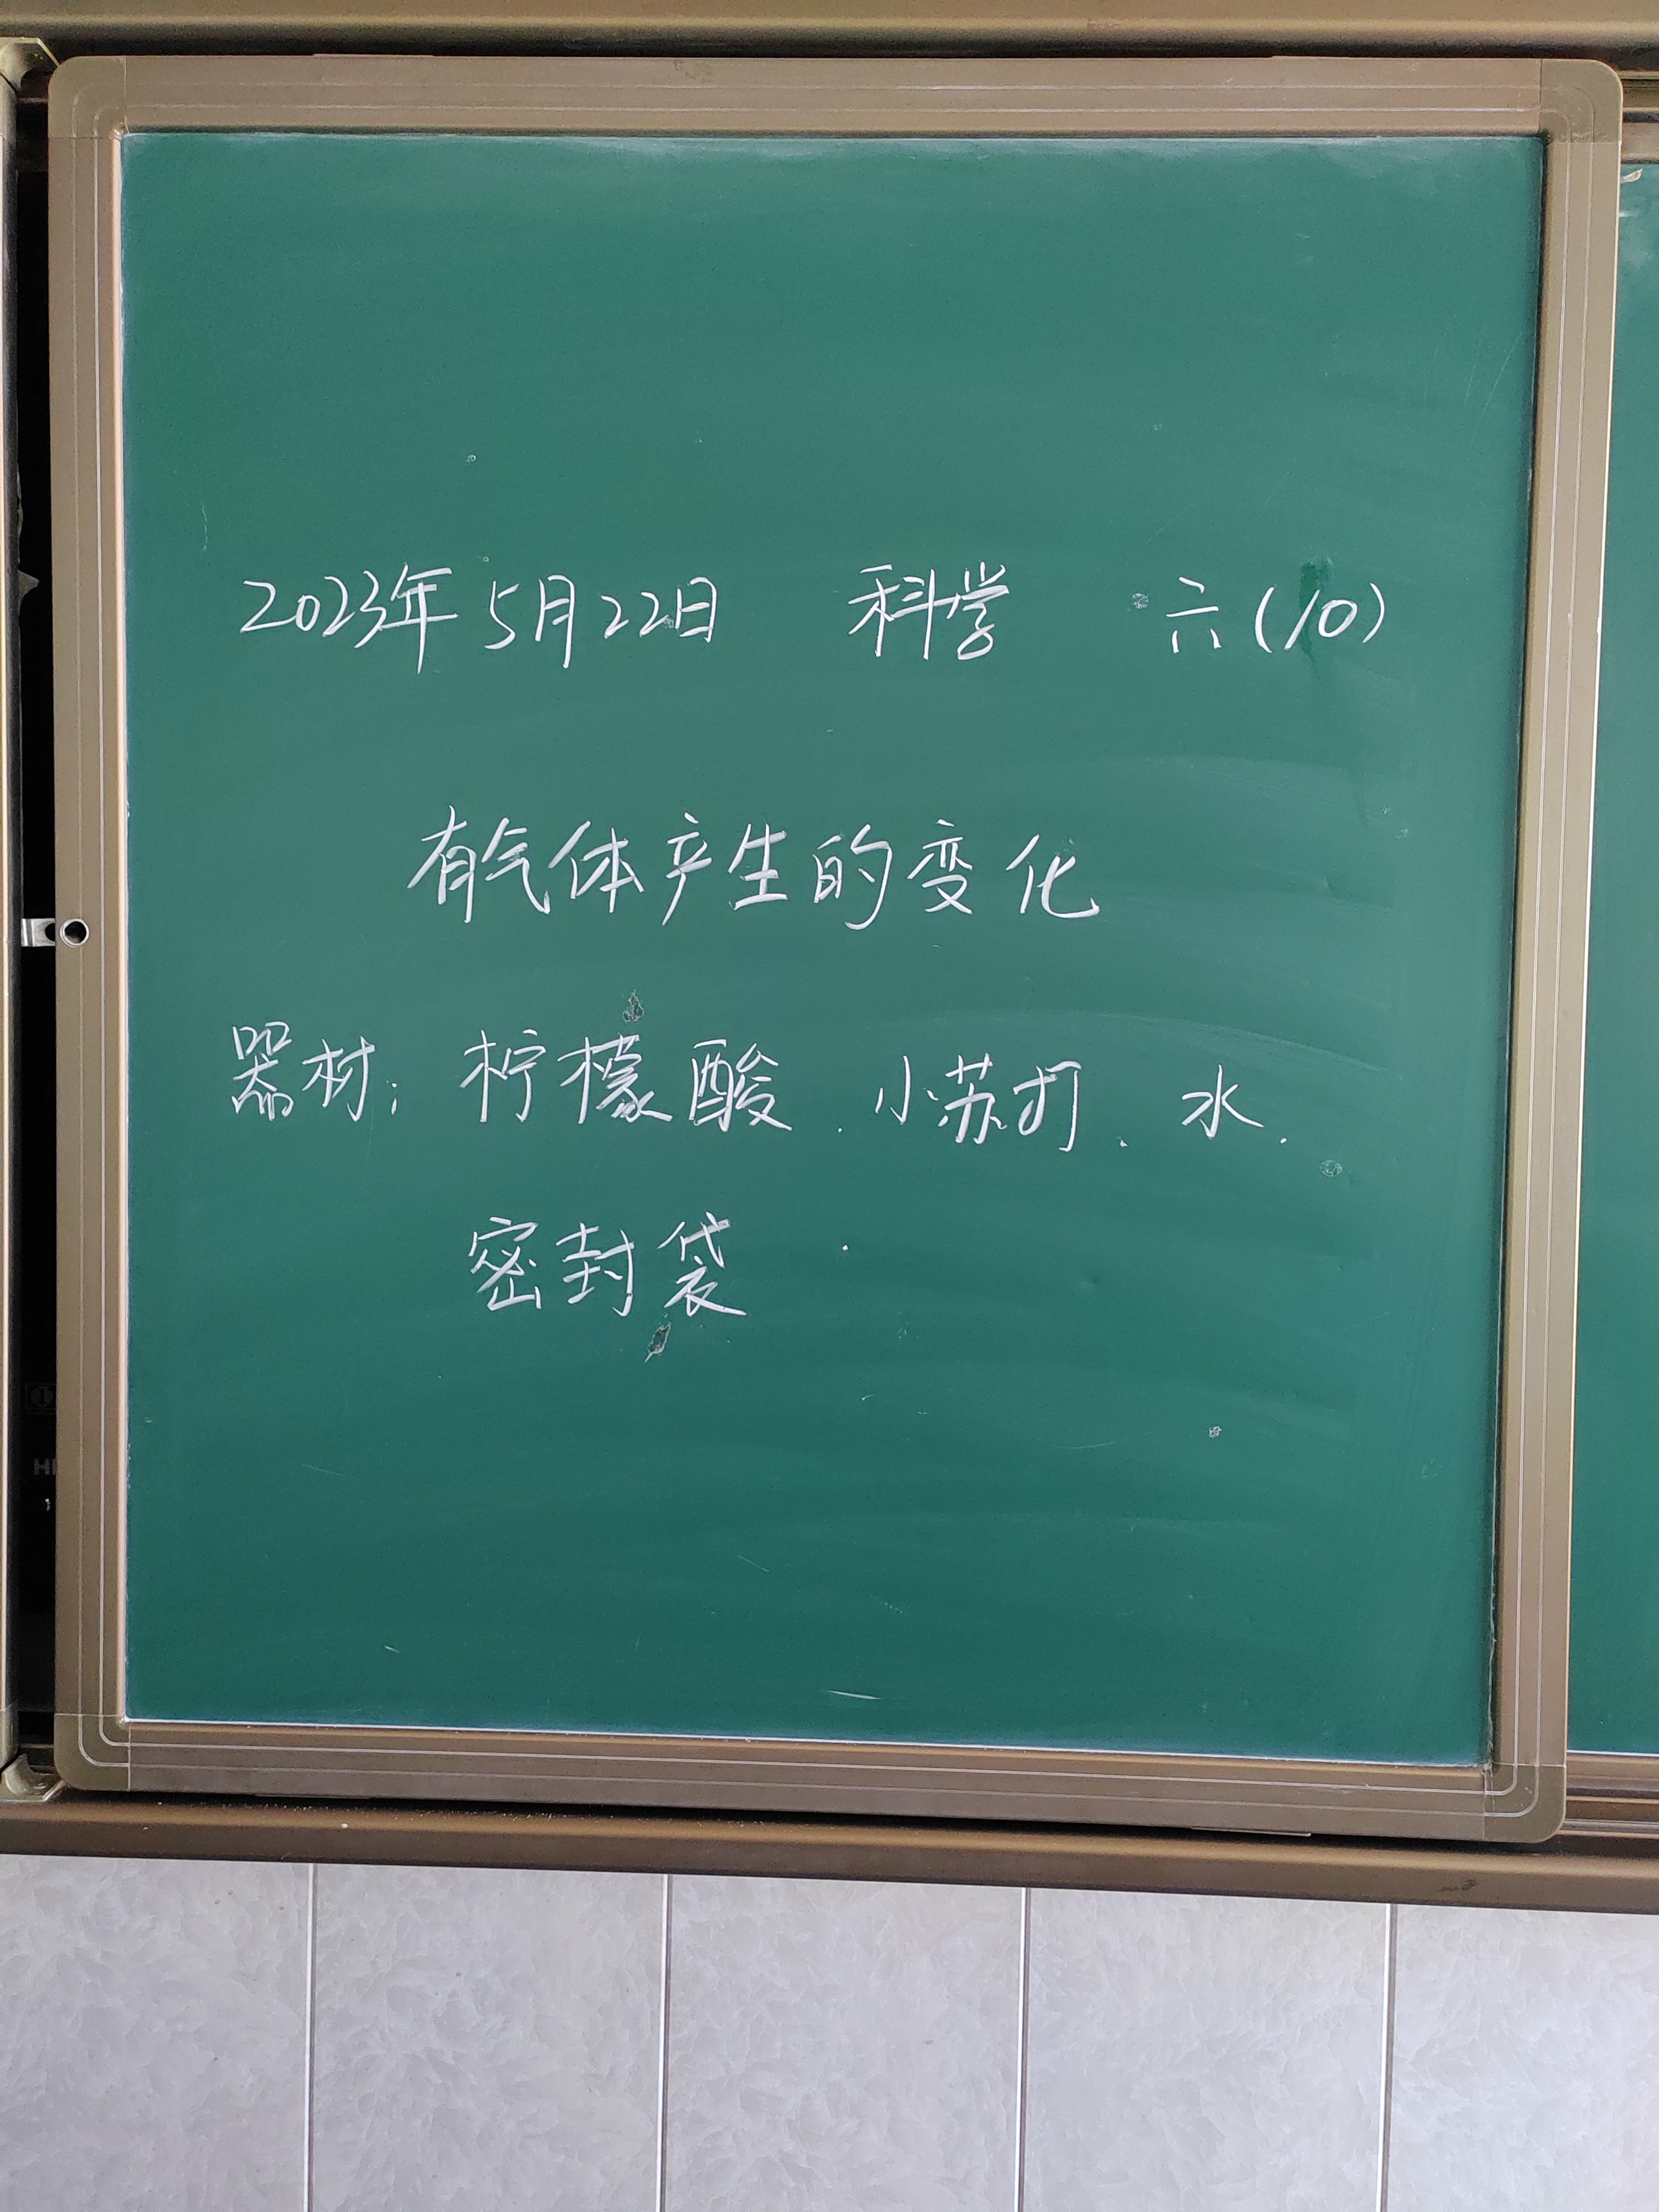 2023年5月22日 科学 六(10)
有气体产生的变化
器材: 柠檬酸、小苏打、水、
密封袋